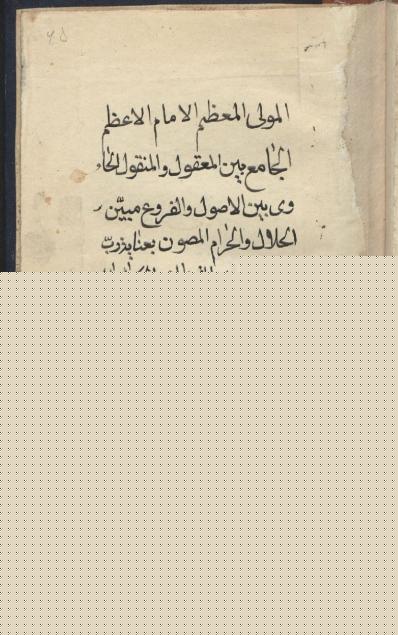 المولى المعظم الامام الاعظم
الجامع بين المعقول والمنقول الحا
وى بين الاصول والفروع مبيّن
الحلال والحرام المصون بعناية ربّ